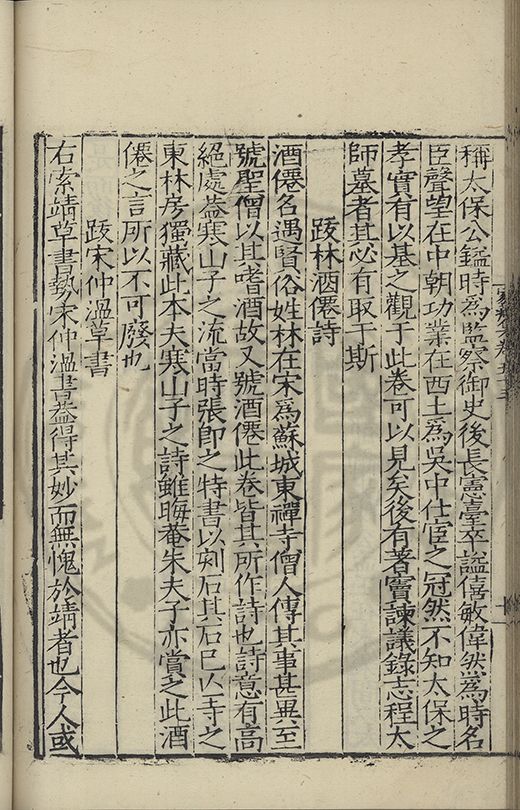 稱太保公鑑時為監察御史後長憲臺卒謚僖敏偉然為時名
臣聲望在中朝功業在西土為吳中仕宦之冠然不知太保之
孝實有以基之觀于此卷可以見矣後有著竇諫議錄志程太
師墓者其必有取于斯
跋林酒僊詩
酒僊名遇賢俗姓林在宋為蘇城東禪寺僧人傳其事甚異至
號聖僧以其嗜酒故又號酒僊此卷皆其所作詩也詩意有高
絕處葢寒山子之流當時張即之特書以刻石其石已亾寺之
東林房獨藏此本夫寒山子之詩雖晦菴朱夫子亦賞之此酒
僊之言所以不可廢也
跋宋仲溫草書
右索靖草書勢宋仲溫書葢得其妙而無愧於靖者也今人或